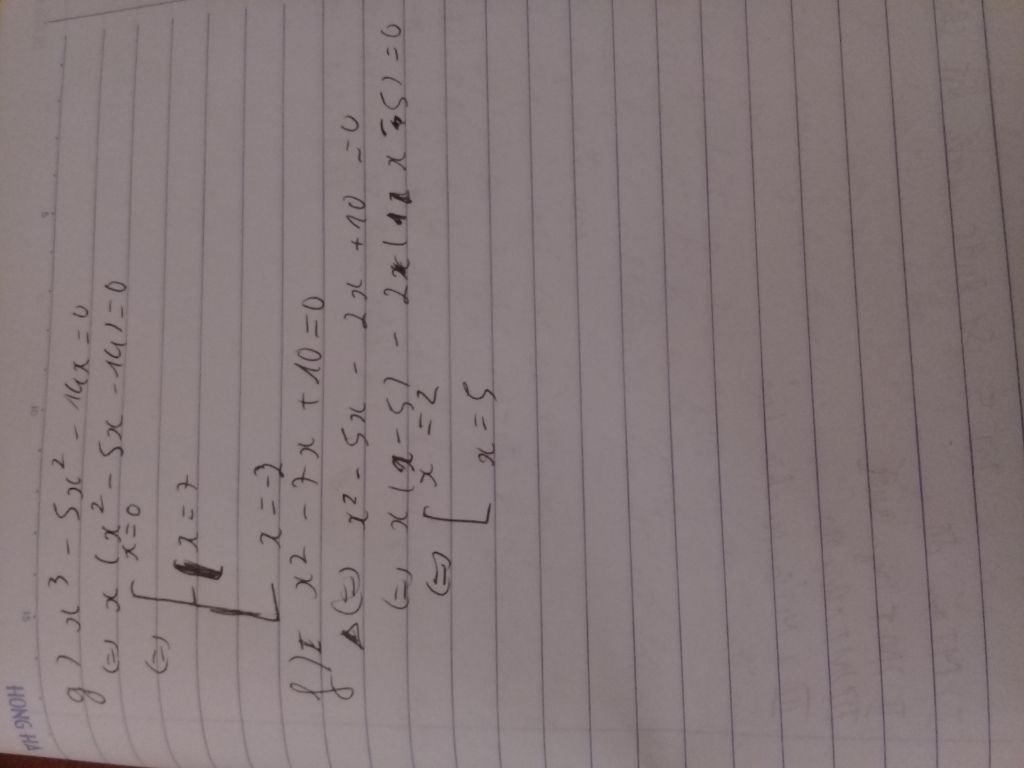 HONG HA
g) x3 - 5x² - 14x = 0
(=) x (x² - 5x - 14) = 0
(=) [ x = 0
x = 7
x = -2
f) x² - 7x + 10 = 0
(=) x² - 5x - 2x + 10 = 0
(=) x (x - 5) - 2 ( x - 5) = 0
(=) [ x = 2
x = 5